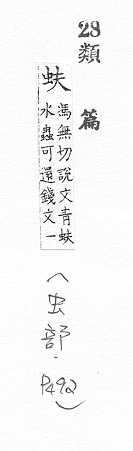 28類篇
蚨 馮無切說文青蚨
水蟲可還錢文一
(虫部.P492)